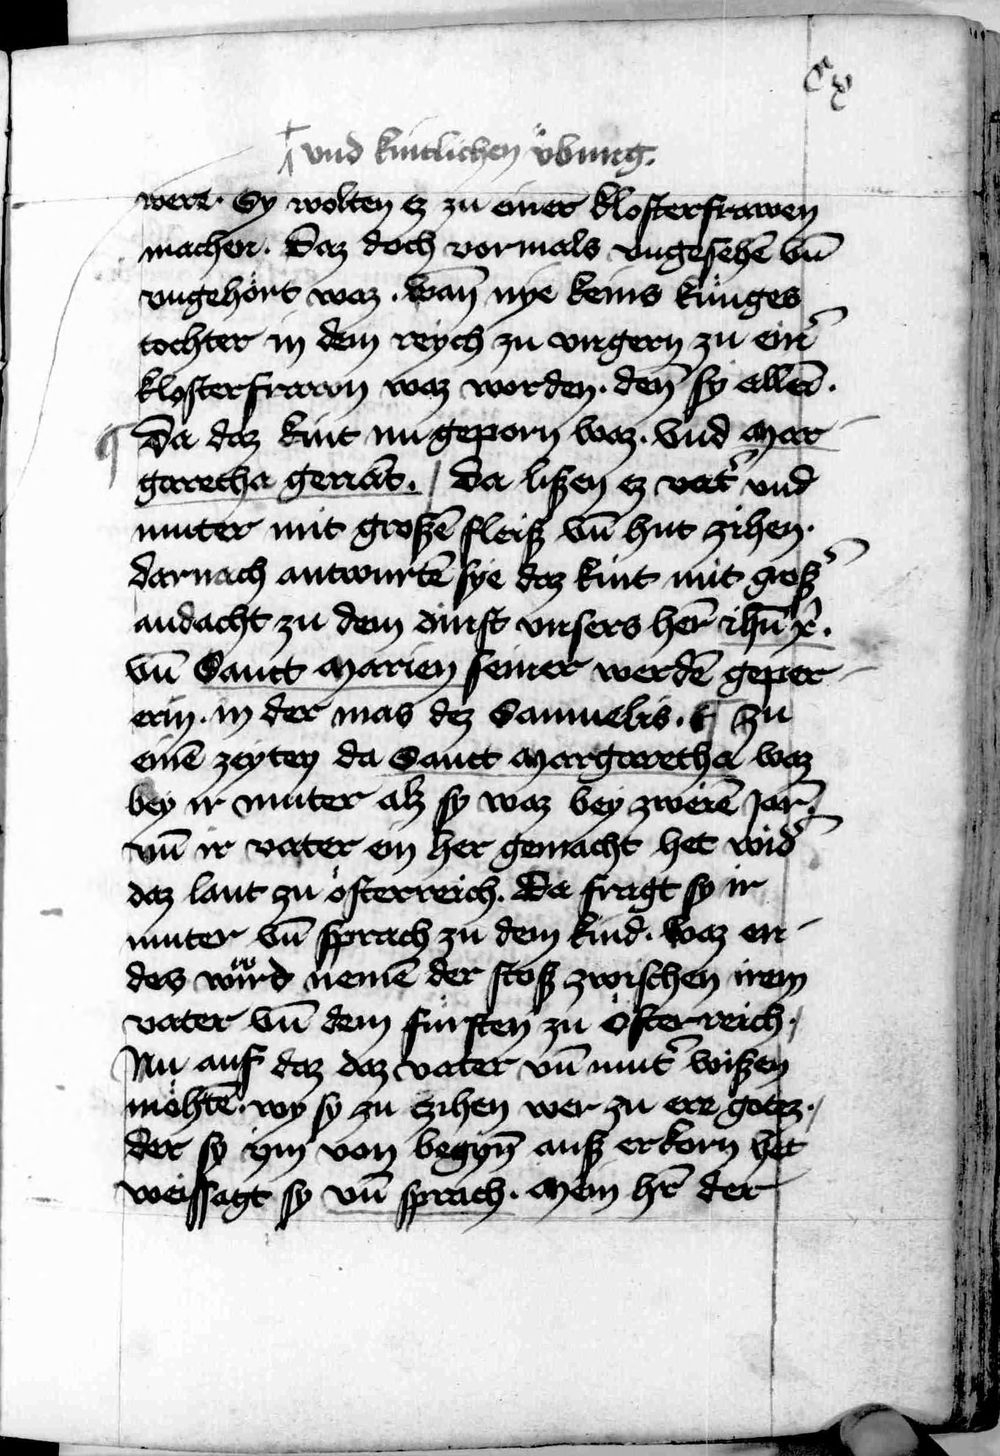 und kintlichen vͤbung.
were. Sy wolten ez zu einer klosterfrawen
machen. Daz doch vormals vngesehē vn̄
vngehört waz. Wan̄ nye keins künges
tochter in dem reych zu vngern zu ein͛
klosterfrawn waz worden. den̄ sy allein̄.
Da daz kint nu geporn waz. Vnd Mar-
garetha genāt. Da lißen ez vat͛ vnd
muter mit großē fleiß vn̄ hut zihen.
darnach antwurtē sye daz kint mit groß͛
andacht zu dem dinst vnsers her̄ ihū xp̄i.
vn̄ Sanct Marien seiner werdē geper-
erin. in der mas dez Samuelis. Zu
einē zeyten da Sanct Margaretha waz
bey ir muter alz sy waz bey zweiē Jar̄.
vn̄ ir vater ein her gemacht het wid͛
daz lant zu österreich. Da fragt sy ir
muter vn̄ sprach zu dem kind. Waz en-
des würd nemē der stoß zwischen irem
vater vn̄ dem fürsten zu Österreich.
Nu auf daz daz vater vn̄ mut͛ wißen
möhtē. wy sy zu zihen wer zu ere gotz.
der sy ym von begyn̄ auß erkorn het
weissagt sy vn̄ sprach. Mein hr̄ der